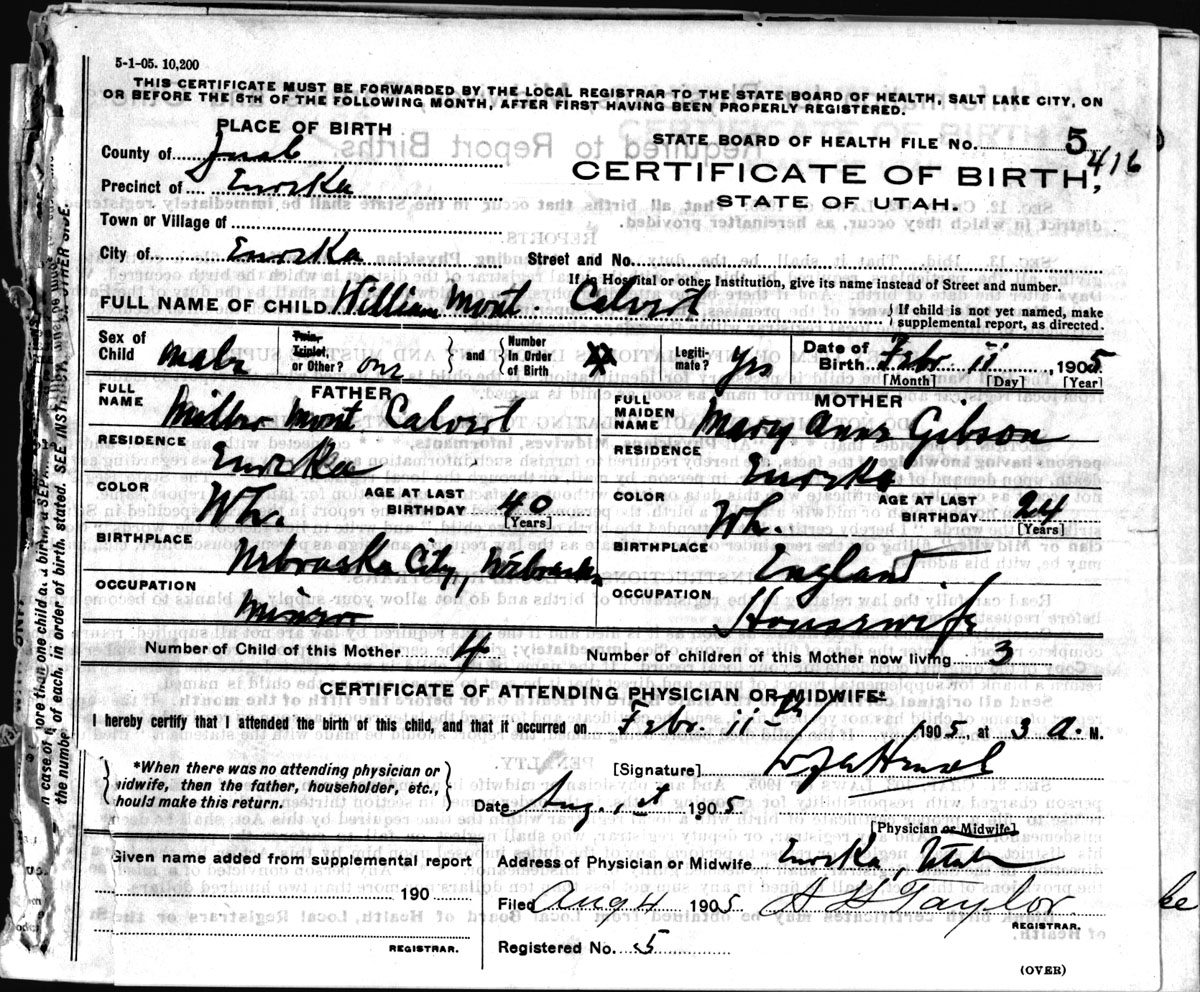 5-1-05. 10,200
THIS CERTIFICATE MUST BE FORWARDED BY THE LOCAL REGISTRAR TO THE STATE BOARD OF HEALTH, SALT LAKE CITY, ON
OR BEFORE THE 5TH OF THE FOLLOWING MONTH, AFTER FIRST HAVING BEEN PROPERLY REGISTERED.
PLACE OF BIRTH
STATE BOARD OF HEALTH FILE No. 5 416
County of Juab
CERTIFICATE OF BIRTH,
Precinct of Eureka
STATE OF UTAH.
Town or Village of
City of Eureka Street and No.
If in Hospital or other Institution, give its name instead of Street and number.
FULL NAME OF CHILD William Mont. Calvert { If child is not yet named, make supplemental report, as directed.
Sex of Child male Twin, Triplet, or Other? one } and { Number In Order of Birth Legiti-mate? yes Date of Birth Febr. 11, 1905
[Month] [Day] [Year]
FATHER MOTHER
FULL NAME Miller Mont Calvert FULL MAIDEN NAME Mary Anne Gibson
RESIDENCE Eureka RESIDENCE Eureka
COLOR Wh. AGE AT LAST BIRTHDAY 40 [Years] COLOR Wh. AGE AT LAST BIRTHDAY 24 [Years]
BIRTHPLACE Nebraska City, Nebraska BIRTHPLACE England
OCCUPATION Miner OCCUPATION Housewife
Number of Child of this Mother 4 Number of children of this Mother now living 3
CERTIFICATE OF ATTENDING PHYSICIAN OR MIDWIFE*
I hereby certify that I attended the birth of this child, and that it occurred on Febr. 11th 1905 at 3 A. M.
*When there was no attending physician or
midwife, then the father, householder, etc.,
should make this return.
[Signature]
Date Aug. 1st 1905
[Physician or Midwife]
Given name added from supplemental report
Address of Physician or Midwife Eureka, Utah
190
Filed Aug 4 1905 Taylor
REGISTRAR.
REGISTRAR.
Registered No. 5
(OVER)